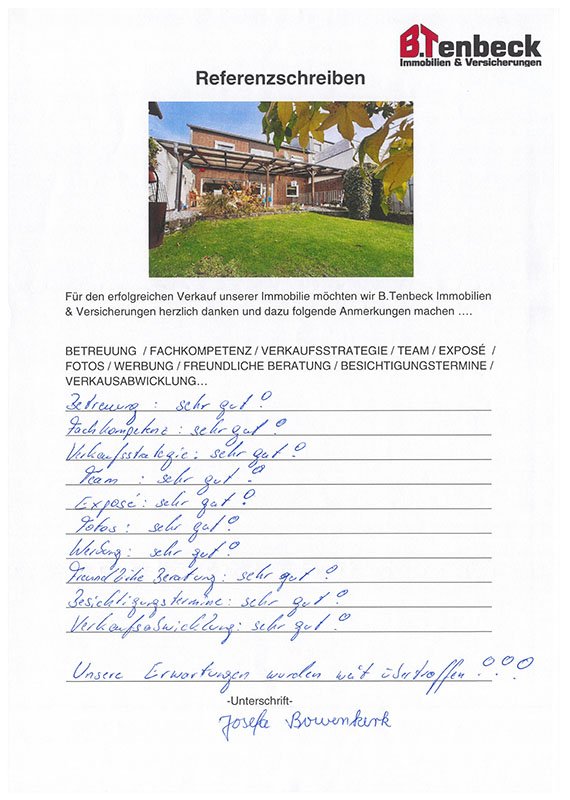 B.Tenbeck
Immobilien & Versicherungen
Referenzschreiben
Für den erfolgreichen Verkauf unserer Immobilie möchten wir B.Tenbeck Immobilien
& Versicherungen herzlich danken und dazu folgende Anmerkungen machen ….
BETREUUNG / FACHKOMPETENZ / VERKAUFSSTRATEGIE / TEAM / EXPOSÉ /
FOTOS / WERBUNG / FREUNDLICHE BERATUNG / BESICHTIGUNGSTERMINE /
VERKAUSABWICKLUNG…
Betreuung : sehr gut !
Fachkompetenz : sehr gut !
Verkaufsstrategie : sehr gut !
Team : sehr gut !
Exposé : sehr gut !
Fotos : sehr gut !
Werbung : sehr gut !
Freundliche Beratung : sehr gut !
Besichtigungstermine : sehr gut !
Verkaufsabwicklung : sehr gut !
Unsere Erwartungen wurden weit übertroffen !!!
-Unterschrift-
Josefa Bowenkerk